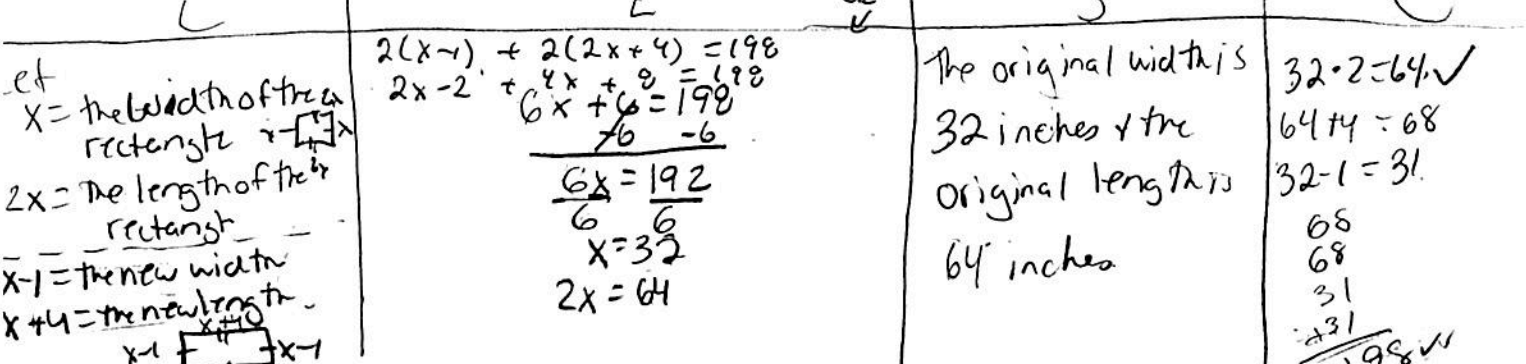 L
E
S
C
et
x = the width of the
rectangle
2x = The length of the
rectangl
x-1 = the new width
x+4 = the new length
x+4
x-1
x-1
2(x-1) + 2(2x+4) = 198
2x-2 + 4x + 8 = 198
6x + 6 = 198
-6 -6
6x = 192
6 6
x=32
2x = 64
The original width is
32 inches & the
original length is
64 inches
32·2=64 ✓
64+4 = 68
32-1 = 31
68
68
31
+31
198 ✓✓